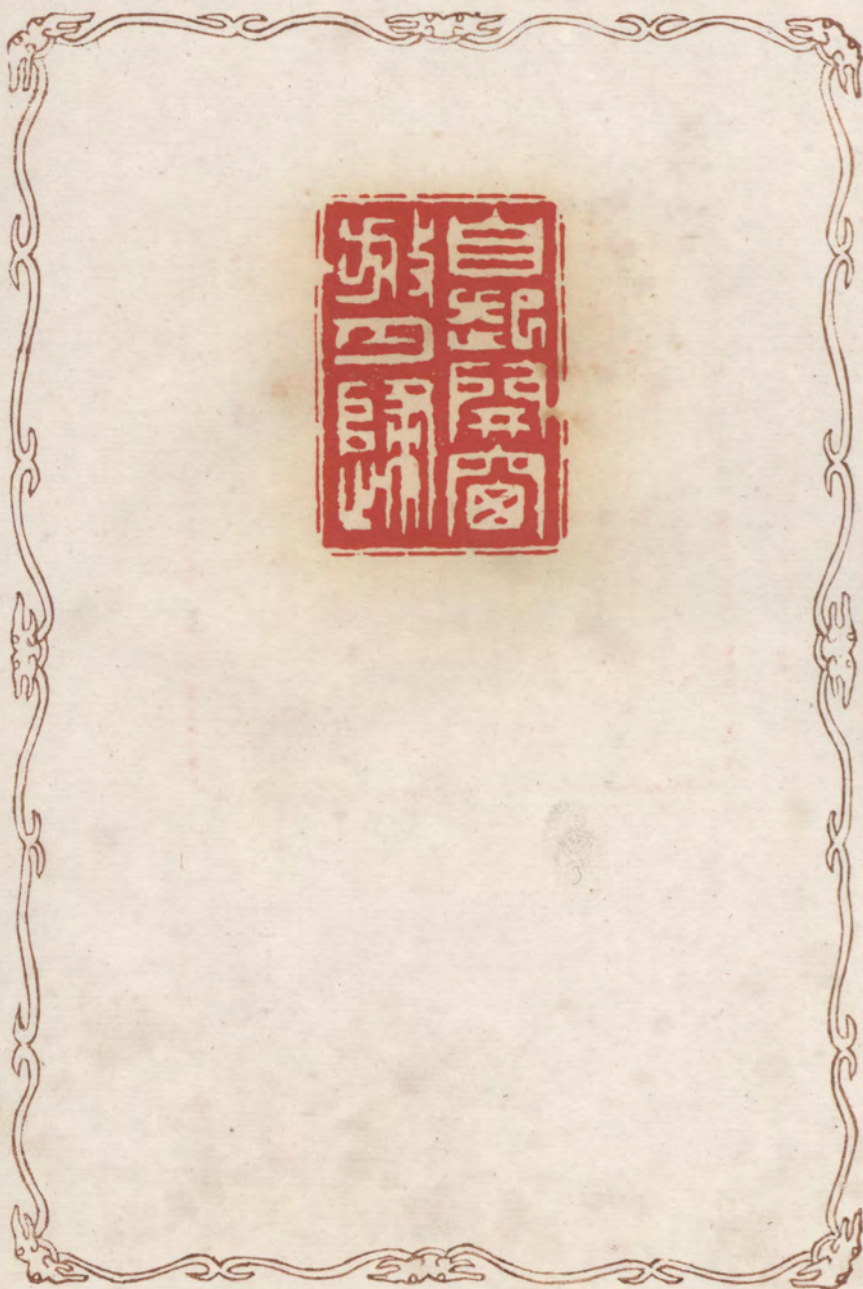 自起開窗
放四歸